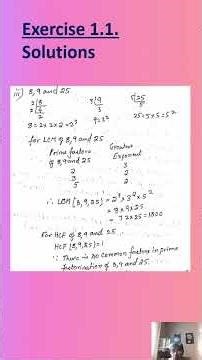 Exercise 1.1.
Solutions
iii) 8, 9 and 25
2|8 3|9 5|25
2|4 3 5
2
8 = 2 × 2 × 2 = 2³ 25 = 5 × 5 = 5²
for LCM of 8, 9 and 25
Prime factors Greatest
of 8, 9 and 25 Exponent
2 3
3 2
5 2
∴ LCM (8, 9, 25) = 2³ × 3² × 5²
= 8 × 9 × 25
= 72 × 25 = 1800
For HCF of 8, 9 and 25
HCF (8, 9, 25) = 1
∵ There is no common factor in prime
factorisation of 8, 9 and 25.